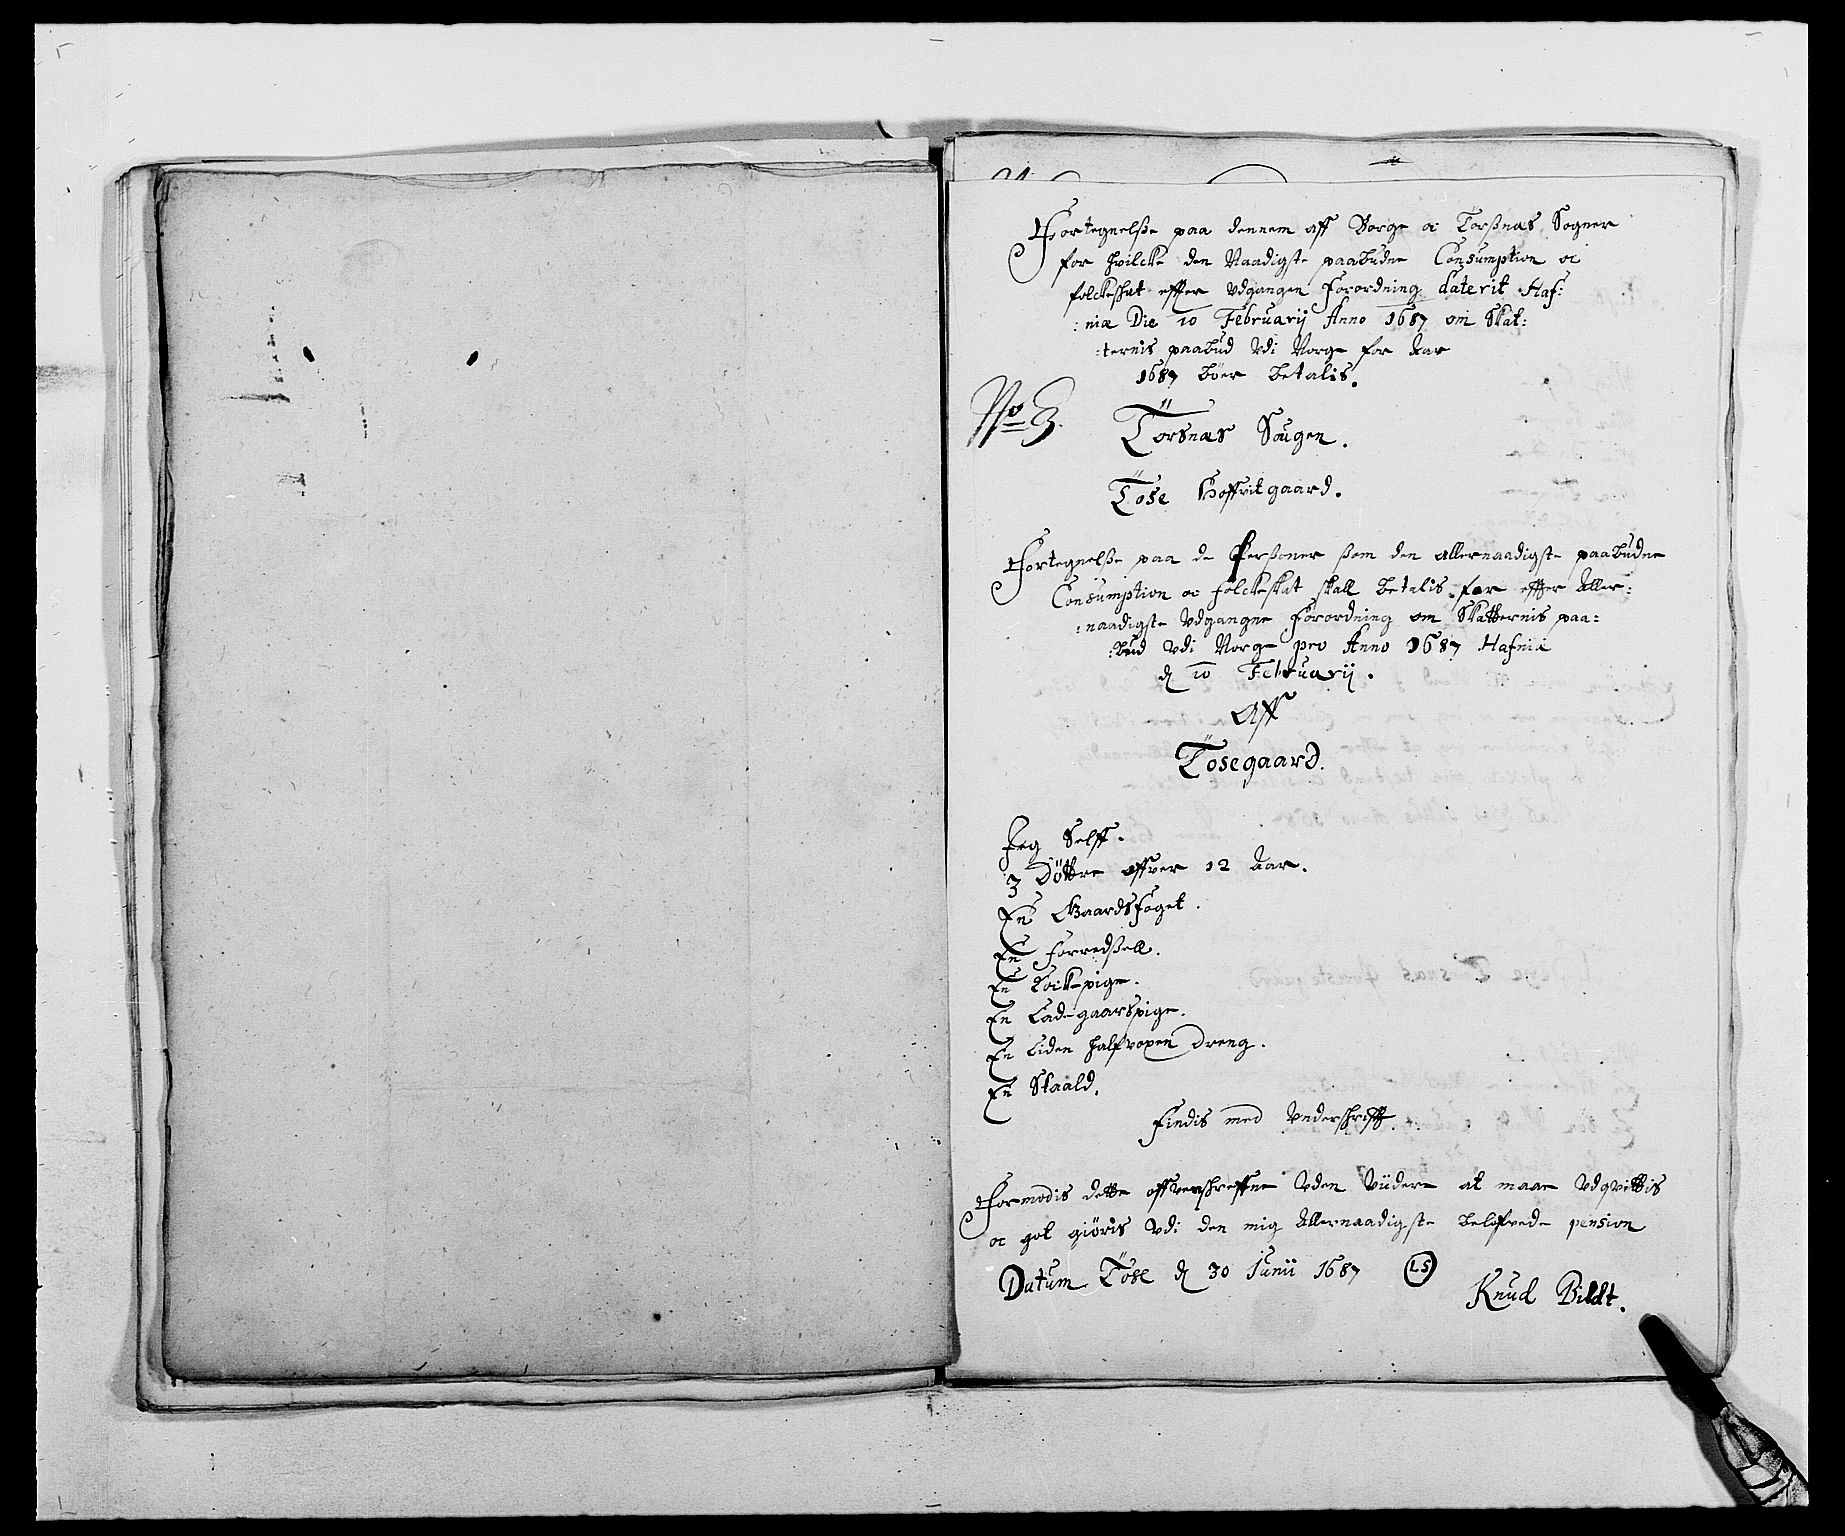 Fortegnelsße paa dennem aff Borge oc Torßnæs Sogner
for hvilcke den Naadigste paabudne Consumption oc
folckeshat effter Udgangen Forordning daterit Haf:
:niæ Die 10 Februarij Anno 1687 om Skat:
:ternis paabud Udi Norge for Aar
1687 böer betalis.
No 3.
Törsnæs Sougen.
Töse Hoffvitgaard.
Fortegnelsße paa de Perßoner ßom den allernaadigste paabudne
Consumption oc folckeskat skall betalis for effter Aller:
:naadigste Udgangne Forordning om Skatternis paa:
:bud Udi Norge pro Anno 1687 Hafniæ
d 10 Februarij.
Aff
Tösegaard.
Jeg Selff.
3 Döttre offver 12 Aar.
En Gaardsfoget.
En Forredßell.
En Kockepige.
En Ladegaarspige.
En Liden halfvoxen Dreng.
En Staald.
Findis med Underschrifft.
Formodis dette offverschreffne Uden Viidere at maae Udqvittis
oc got giöris Udi den mig Allernaadigste belofvede pension
Datum Töse d 30 Junii 1687 LS
Knud Bildt.